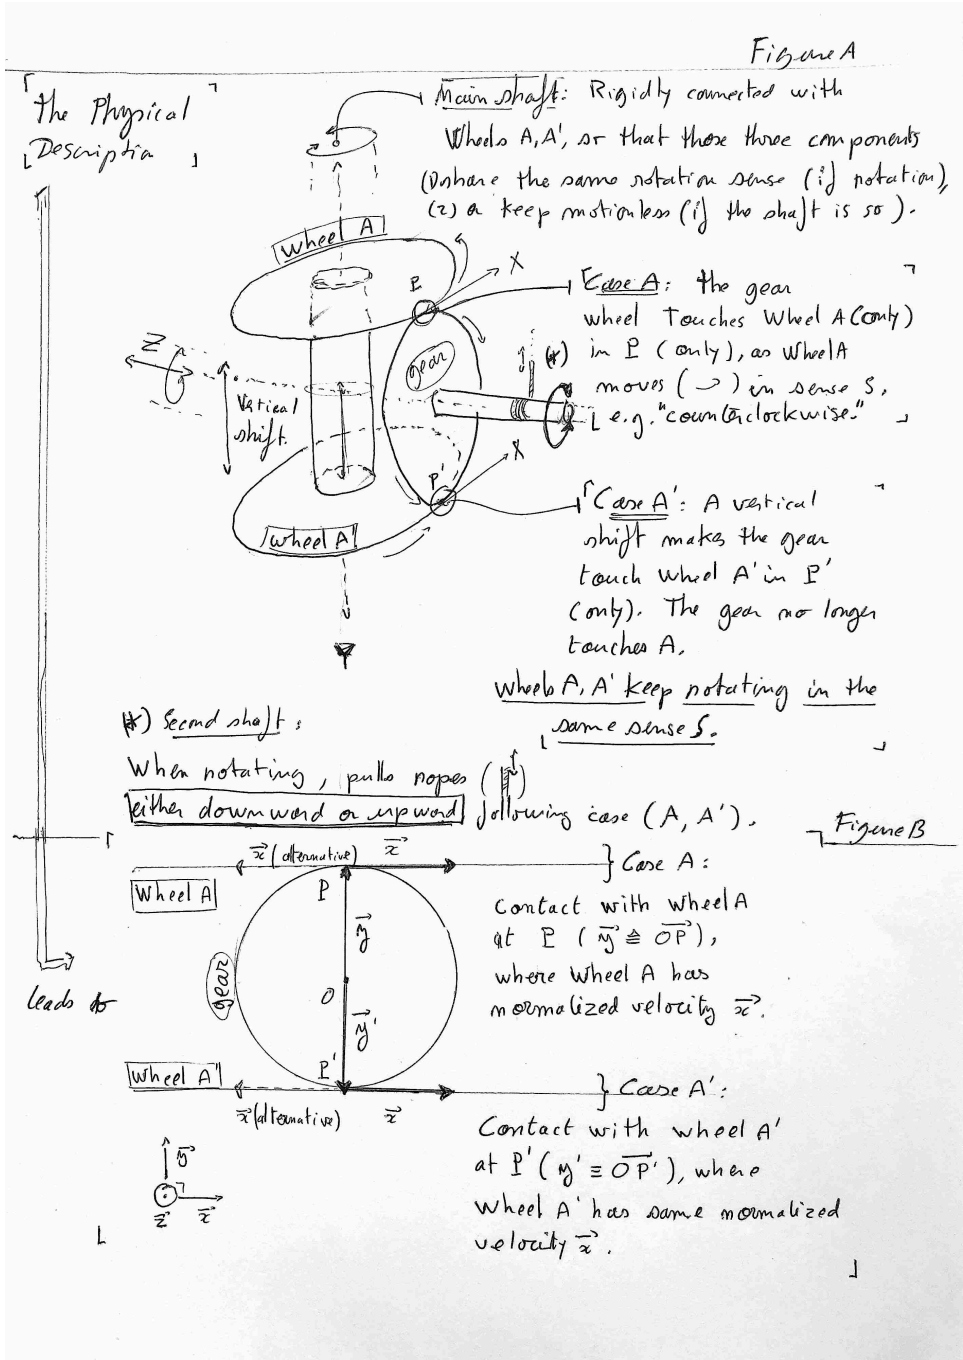 Figure A
The Physical
Description
Main shaft: Rigidly connected with
Wheels A, A', so that those three components
(1) share the same rotation sense (if rotation),
(2) or keep motionless (if the shaft is so).
Wheel A
P
X
Case A: the gear
wheel Touches Wheel A (only)
in P (only), as Wheel A
moves (→) in sense S,
e.g. "counterclockwise."
(*)
gear
Z
Vertical
shift.
P'
X
Wheel A'
Case A': A vertical
shift makes the gear
touch wheel A' in P'
(only). The gear no longer
touches A.
Wheels A, A' keep rotating in the
same sense S.
(*) Second shaft:
When rotating, pulls ropes ( )
either downward or upward following case (A, A').
Figure B
x⃗ (alternative) x⃗
Wheel A
P
y⃗
gear
O
y⃗'
P'
Wheel A'
x⃗ (alternative) x⃗
leads to
} Case A:
Contact with wheel A
at P ( y⃗ ≙ OP⃗ ),
where Wheel A has
normalized velocity x⃗.
} Case A':
Contact with wheel A'
at P' ( y' ≡ OP'⃗ ), where
Wheel A' has same normalized
velocity x⃗.
y⃗
z⃗ x⃗